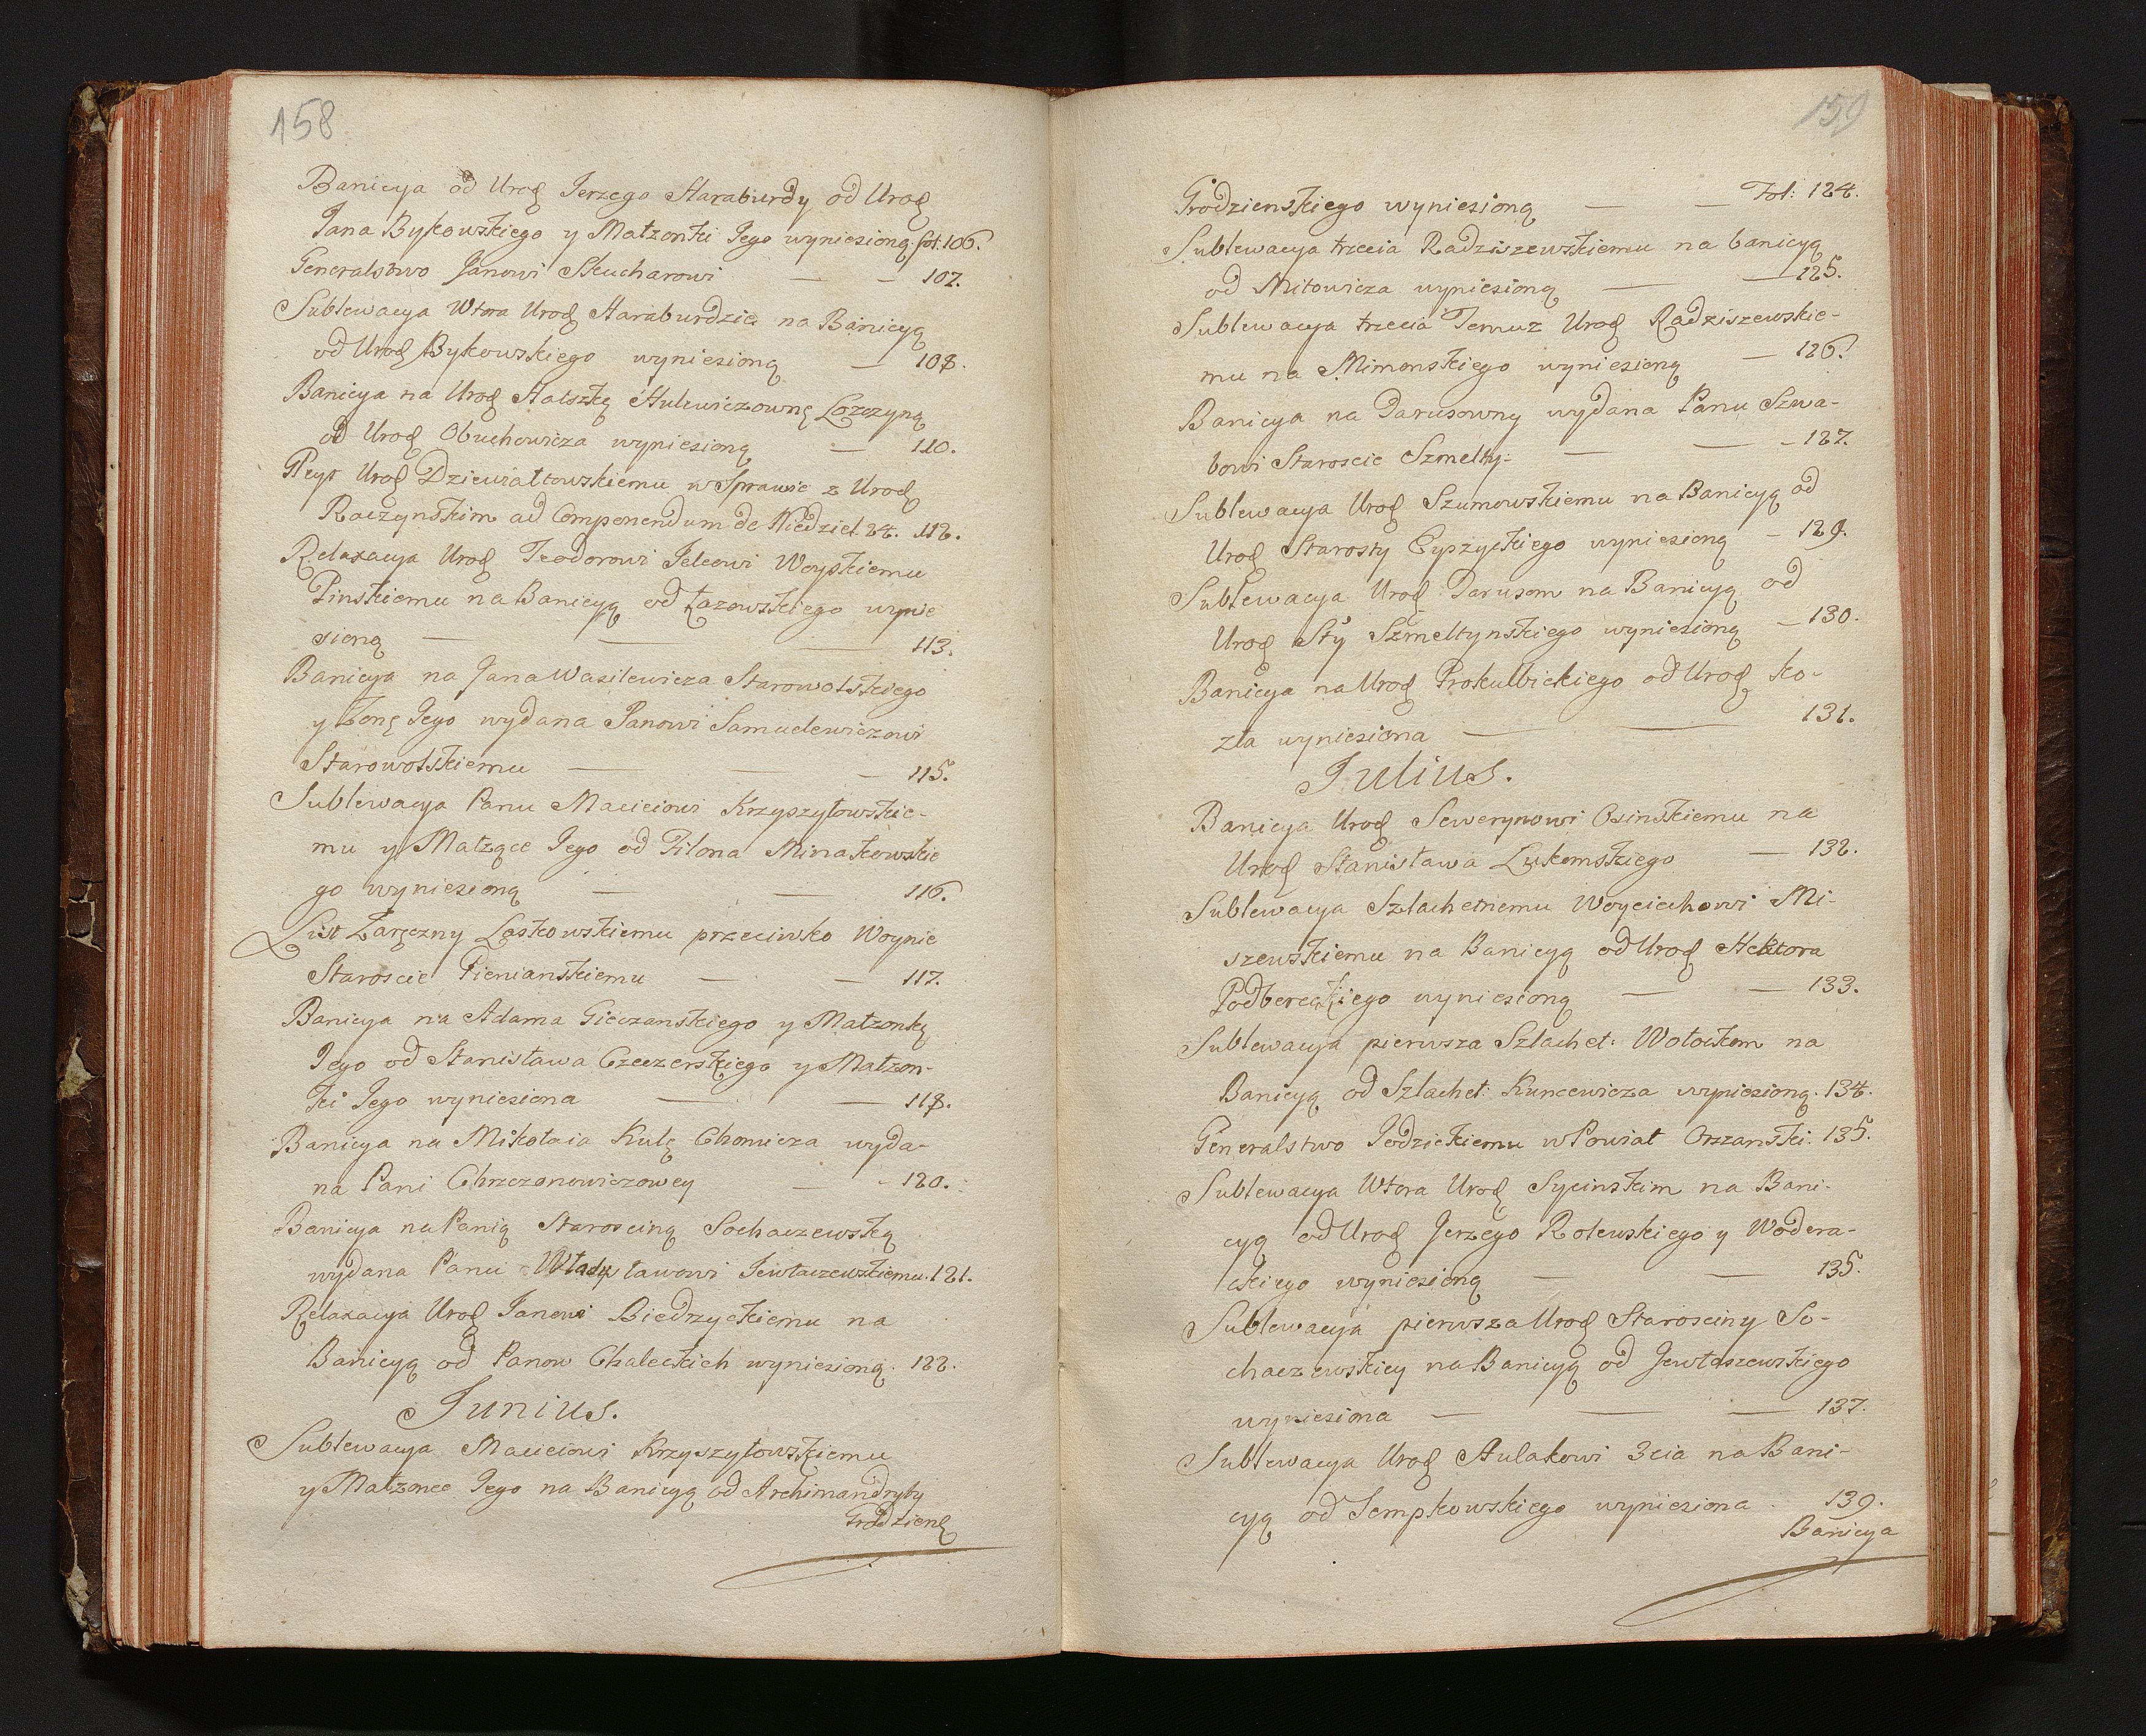 158
Banicya od Urod Jerzego Haraburdy od Urod
Jana Bykowskiego y Małzonki Jego wyniesioną. fol: 106.
Generalstwo Janowi Słucharowi — - 107.
Sublewacya Wtora Urod Haraburdzie na Banicyą
od Urod Bykowskiego wyniesioną — 108.
Banicya na Urod Halszkę Hulewiczownę Łozczyną
od Urod Obuchowicza wyniesioną — 110.
Urod Dziewiałtowskiemu w Sprawie z Urod
Raczynskim ad Componendum de Niedziel 24. 112.
Relaxacya Urod Teodorowi Jelcowi Woyskiemu
Pinskiemu na Banicyą od Łazowskiego wynie
sioną — — — 113.
Banicya na Jana Wasilewicza Starowolskiego
y Zonę Jego wydana Panowi Samuelewiczowi
Starowolskiemu — — — 115.
Sublewacya Panu Macieiowi Krzyszyłowskie-
mu y Małzące Jego od Filona Minakowskie
go wyniesioną — — 116.
List Zaręczny Laskowskiemu przeciwko Woynie
Staroscie Pienianskiemu — — 117.
Banicya na Adama Gieczanskiego y Małzonkę
Jego od Stanisława Czeczerskiego y Małzon-
ki Jego wyniesiona — — 118.
Banicya na Mikołaia Kulę Chomicza wyda-
na Pani Chrzczonowiczowey — - 120.
Banicya na Panią Starościną Sochaczewską
wydana Panu Władysławowi Jewłaczewskiemu. 121.
Relaxacya Urod Janowi Biedrzyckiemu na
Banicyą od Panow Chaleckich wyniesioną. 122.
Junius.
Sublewacya Macieiowi Krzyszyłowskiemu
y Małzonce Jego na Banicyą od Archimandryty
Grodzien
159
Grodzienskiego wyniesioną — — Fol: 124.
Sublewacya trzecia Radziszewskiemu na banicyą
od Mitowicza wyniesioną — — 125.
Sublewacya trzecia Temuz Urod Radziszewskie-
mu na Mimonskiego wyniesioną — 126.
Banicya na Darusowny wydana Panu Szwa-
bowi Staroscie Szmelty: — — - 127.
Sublewacya Urod Szumowskiemu na Banicyą od
Urod Starosty Cyrzyckiego wyniesioną - 129.
Sublewacya Urod Darusom na Banicyą od
Urod Sty Szmeltynskiego wyniesioną - 130.
Banicya na Urod Prokulbickiego od Urod Ko-
zła wyniesiona — — 131.
Julius.
Banicya Urod Sewerynowi Osinskiemu na
Urod Stanisława Łukomskiego — 132.
Sublewacya Szlachetnemu Woyciechowi Mi-
szewskiemu na Banicyą od Urod Hektora
Podbereskiego wyniesioną — — 133.
Sublewacya pierwsza Szlachet: Wołockom na
Banicyą od Szlachet: Kuncewicza wyniesioną. 134.
Generalstwo Jodzickiemu w Powiat Orzanski. 135.
Sublewacya Wtora Urod Sycinskim na Bani-
cyą od Urod Jerzego Rolewskiego y Wodera-
ckiego wyniesioną — — 135.
Sublewacya pierwsza Urod Starosciny So-
chaczewskiey na Banicyą od Jewłaszewskiego
wyniesiona — — — 137.
Sublewacya Urod Hulakowi 3cia na Bani-
cyą od Sempkowskiego wyniesiona. 139.
Banicya